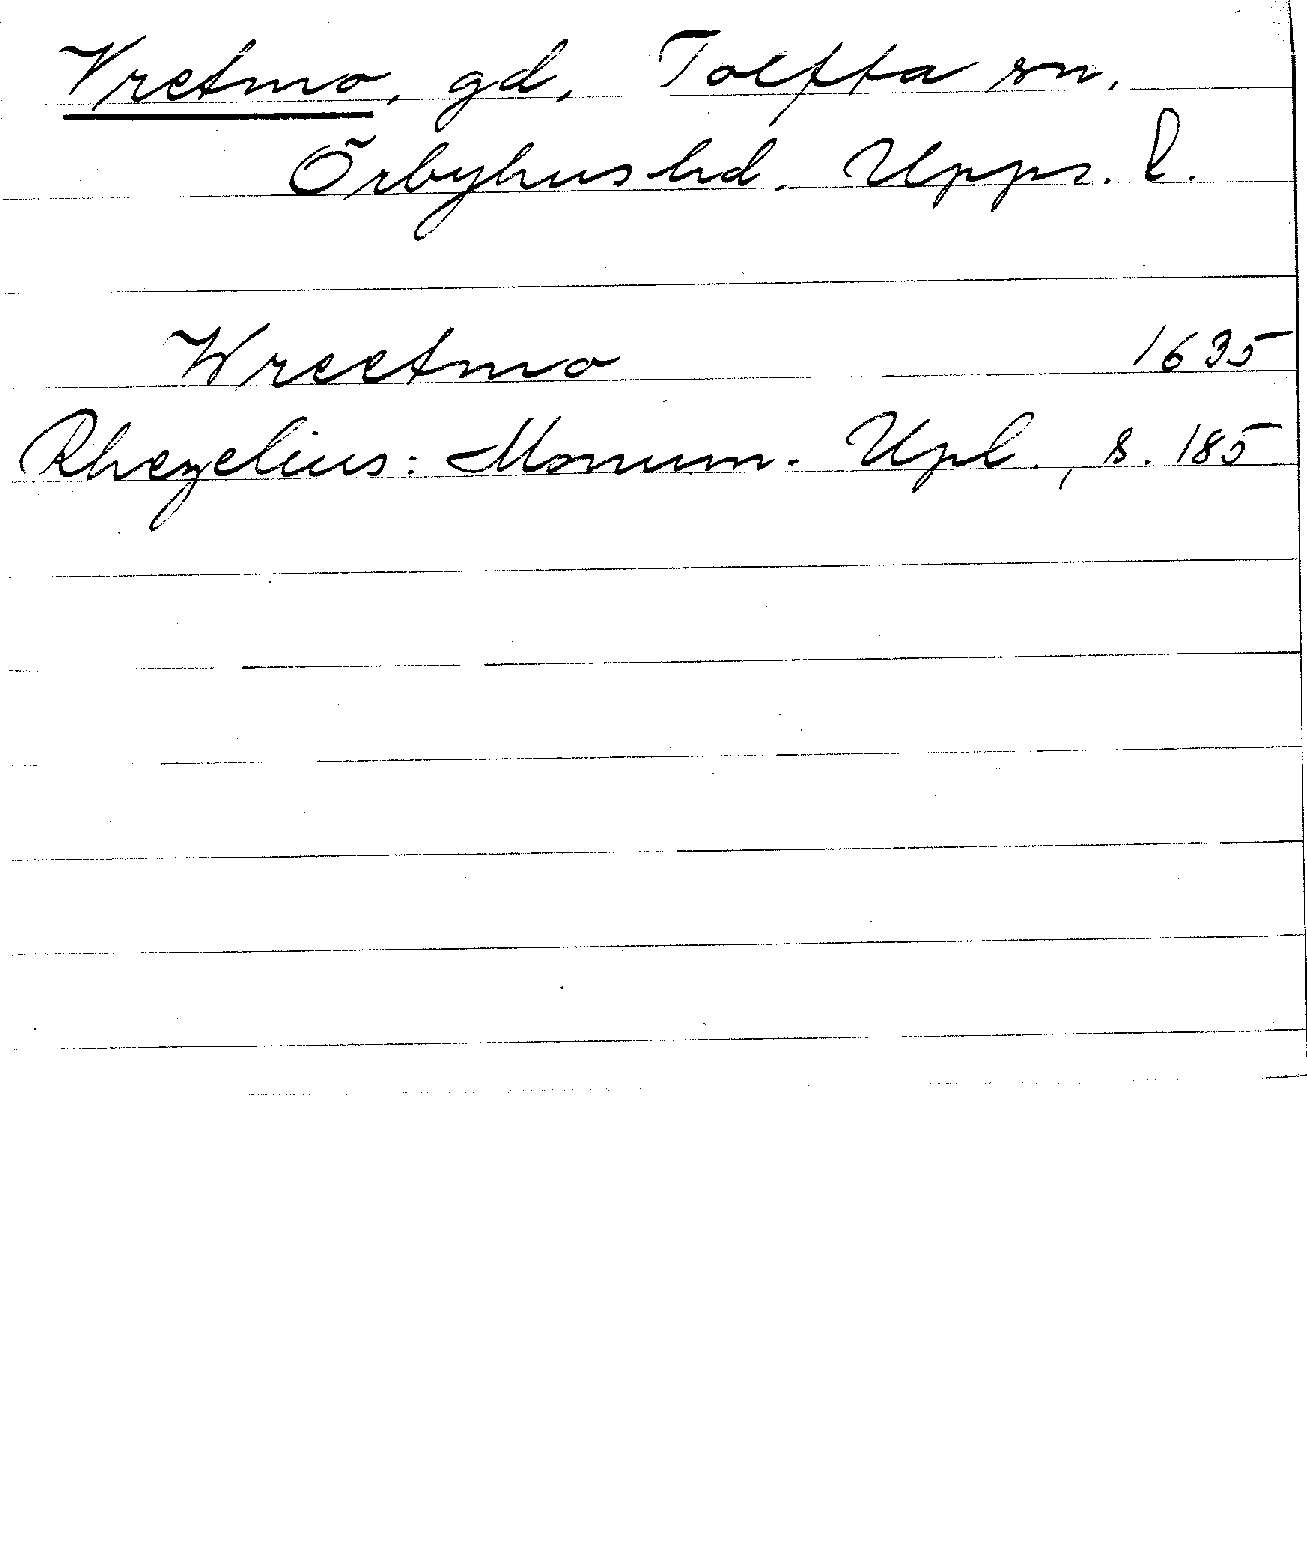 Vretmo, gd, Tolfta sn,
Örbyhus hd. Upps. l.
Wreetmo 1635
Rhezelius: Monum. Upl., s. 185